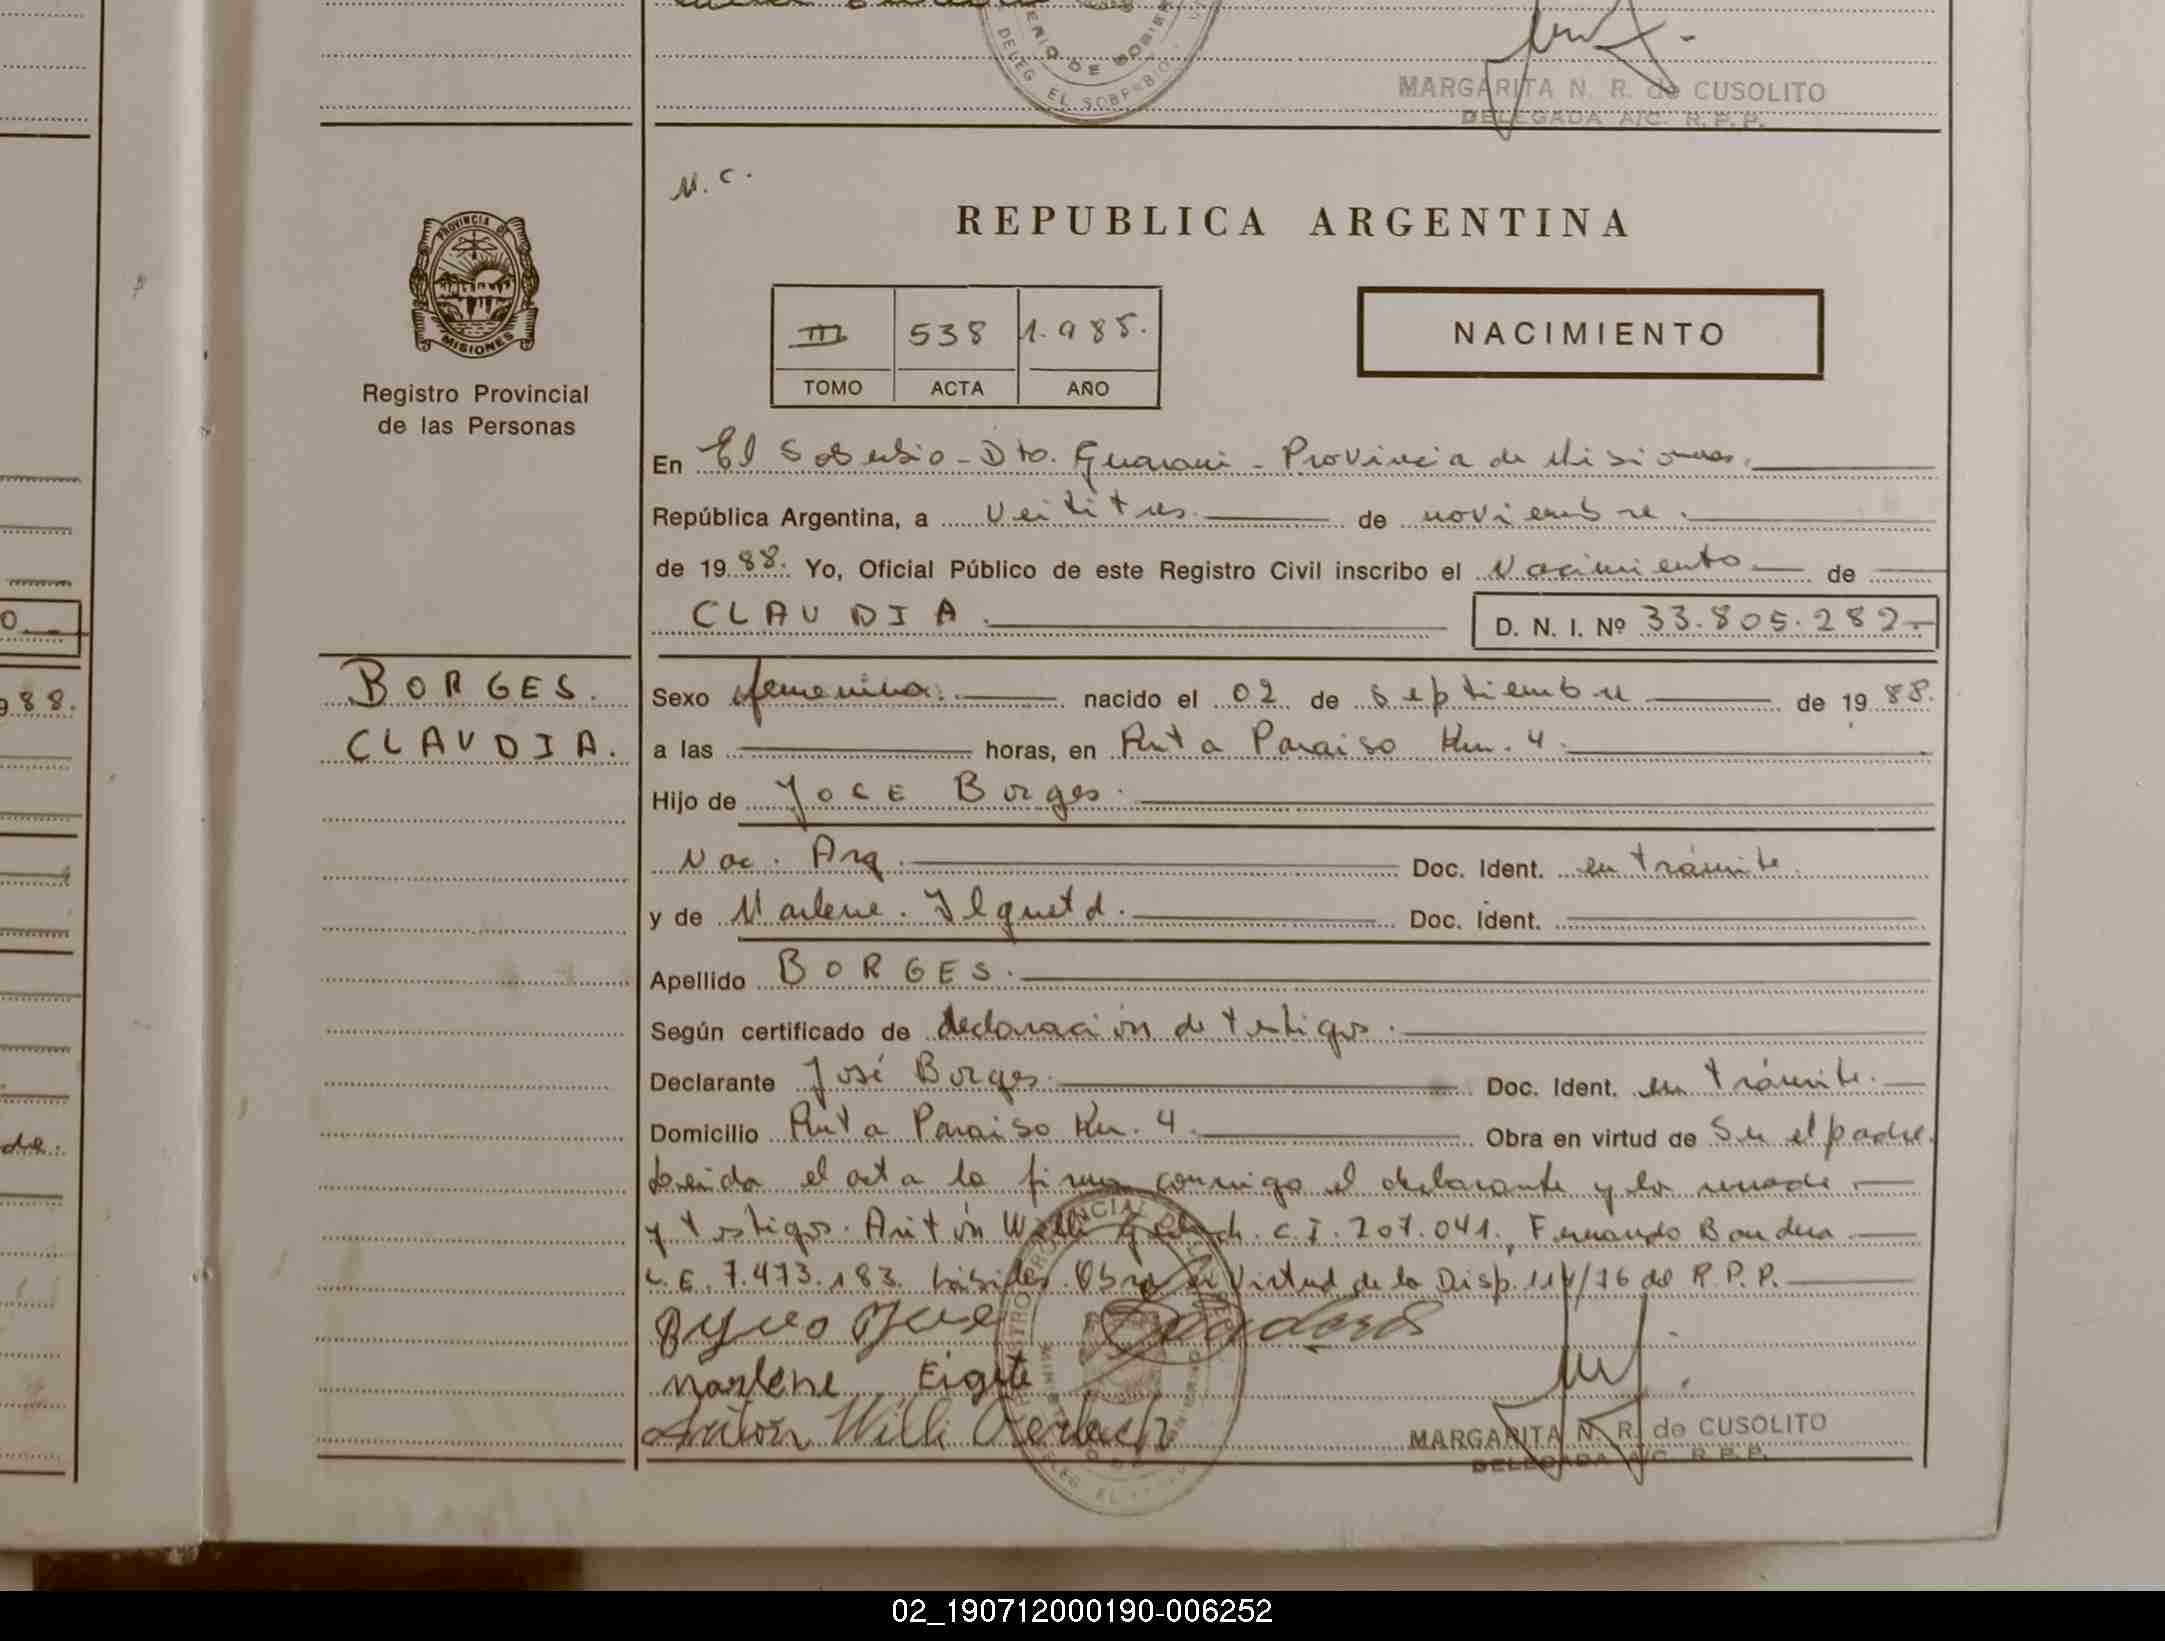 MARGARITA N. R. de CUSOLITO
DELEGADA A/C. R.P.P.
N. C.
REPUBLICA ARGENTINA
PROVINCIA DE
MISIONES
Registro Provincial
de las Personas
III 538 1.985.
TOMO ACTA AÑO
NACIMIENTO
En El Soberbio - Dto. Guaraní - Provincia de Misiones.
República Argentina, a veititres de noviembre.
de 1988. Yo, Oficial Público de este Registro Civil inscribo el Nacimiento de
CLAUDIA D. N. I. Nº 33.805.282.-
BORGES.
CLAUDIA.
Sexo femenino. nacido el 02 de septiembre de 1988.
a las horas, en Ruta Paraiso Km. 4.
Hijo de Jose Borges.
Nac. Arg. Doc. Ident. en trámite.
y de Marlene. Ilguetd. Doc. Ident.
Apellido BORGES.
Según certificado de declaración de testigos.
Declarante José Borges. Doc. Ident. en trámite.
Domicilio Ruta Paraiso Km. 4. Obra en virtud de Ser el padre.
Leida el acta la firma conmigo el declarante y la madre
y testigos. Antón Willi C.I. 207.041., Fernando Bandera
L.E. 7.473.183. hábiles. Obra en Virtud de la Disp. 114/76 del R.P.P.
Marlene
Anton Willi Gerlach
MARGARITA N. R. de CUSOLITO
DELEGADA A/C. R.P.P.
988.
02_190712000190-006252